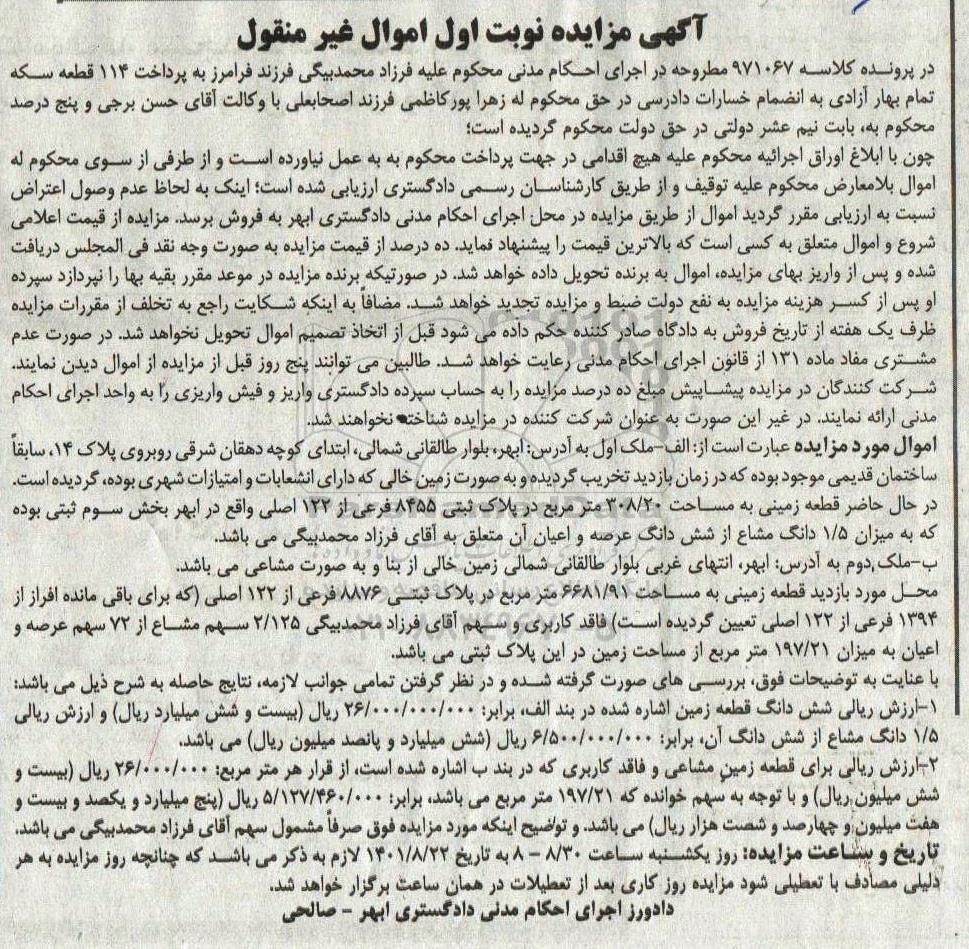 آگهی مزایده نوبت اول اموال غیر منقول
در پرونده کلاسه ۹۷۱۰۶۷ مطروحه در اجرای احکام مدنی محکوم علیه فرزاد محمدبیگی فرزند فرامرز به پرداخت ۱۱۴ قطعه سکه
تمام بهار آزادی به انضمام خسارات دادرسی در حق محکوم له زهرا پورکاظمی فرزند اصحابعلی با وکالت آقای حسن برجی و پنج درصد
محکوم به، بابت نیم عشر دولتی در حق دولت محکوم گردیده است؛
چون با ابلاغ اوراق اجرائیه محکوم علیه هیچ اقدامی در جهت پرداخت محکوم به به عمل نیاورده است و از طرفی از سوی محکوم له
اموال بلامعارض محکوم علیه توقیف و از طریق کارشناسان رسمی دادگستری ارزیابی شده است؛ اینک به لحاظ عدم وصول اعتراض
نسبت به ارزیابی مقرر گردید اموال از طریق مزایده در محل اجرای احکام مدنی دادگستری ابهر به فروش برسد. مزایده از قیمت اعلامی
شروع و اموال متعلق به کسی است که بالاترین قیمت را پیشنهاد نماید. ده درصد از قیمت مزایده به صورت وجه نقد فی المجلس دریافت
شده و پس از واریز بهای مزایده، اموال به برنده تحویل داده خواهد شد. در صورتیکه برنده مزایده در موعد مقرر بقیه بها را نپردازد سپرده
او پس از کسر هزینه مزایده به نفع دولت ضبط و مزایده تجدید خواهد شد. مضافاً به اینکه شکایت راجع به تخلف از مقررات مزایده
ظرف یک هفته از تاریخ فروش به دادگاه صادر کننده حکم داده می شود قبل از اتخاذ تصمیم اموال تحویل نخواهد شد. در صورت عدم
مشتری مفاد ماده ۱۳۱ از قانون اجرای احکام مدنی رعایت خواهد شد. طالبین می توانند پنج روز قبل از مزایده از اموال دیدن نمایند.
شرکت کنندگان در مزایده پیشاپیش مبلغ ده درصد مزایده را به حساب سپرده دادگستری واریز و فیش واریزی را به واحد اجرای احکام
مدنی ارائه نمایند. در غیر این صورت به عنوان شرکت کننده در مزایده شناخته نخواهند شد.
اموال مورد مزایده عبارت است از: الف-ملک اول به آدرس: ابهر، بلوار طالقانی شمالی، ابتدای کوچه دهقان شرقی روبروی پلاک ۱۴، سابقاً
ساختمان قدیمی موجود بوده که در زمان بازدید تخریب گردیده و به صورت زمین خالی که دارای انشعابات و امتیازات شهری بوده، گردیده است.
در حال حاضر قطعه زمینی به مساحت ۳۰۸/۲۰ متر مربع در پلاک ثبتی ۸۴۵۵ فرعی از ۱۲۲ اصلی واقع در ابهر بخش سوم ثبتی بوده
که به میزان ۱/۵ دانگ مشاع از شش دانگ عرصه و اعیان آن متعلق به آقای فرزاد محمدبیگی می باشد.
ب-ملک دوم به آدرس: ابهر، انتهای غربی بلوار طالقانی شمالی زمین خالی از بنا و به صورت مشاعی می باشد.
محل مورد بازدید قطعه زمینی به مساحت ۶۶۸۱/۹۱ متر مربع در پلاک ثبتی ۸۸۷۶ فرعی از ۱۲۲ اصلی (که برای باقی مانده افراز از
۱۳۹۴ فرعی از ۱۲۲ اصلی تعیین گردیده است) فاقد کاربری و سهم آقای فرزاد محمدبیگی ۲/۱۲۵ سهم مشاع از ۷۲ سهم عرصه و
اعیان به میزان ۱۹۷/۲۱ متر مربع از مساحت زمین در این پلاک ثبتی می باشد.
با عنایت به توضیحات فوق، بررسی های صورت گرفته شده و در نظر گرفتن تمامی جوانب لازمه، نتایج حاصله به شرح ذیل می باشد:
۱-ارزش ریالی شش دانگ قطعه زمین اشاره شده در بند الف، برابر: ۲۶/۰۰۰/۰۰۰/۰۰۰ ریال (بیست و شش میلیارد ریال) و ارزش ریالی
۱/۵ دانگ مشاع از شش دانگ آن، برابر: ۶/۵۰۰/۰۰۰/۰۰۰ ریال (شش میلیارد و پانصد میلیون ریال) می باشد.
۲-ارزش ریالی برای قطعه زمین مشاعی و فاقد کاربری که در بند ب اشاره شده است، از قرار هر متر مربع: ۲۶/۰۰۰/۰۰۰ ریال (بیست و
شش میلیون ریال) و با توجه به سهم خوانده که ۱۹۷/۲۱ متر مربع می باشد، برابر: ۵/۱۲۷/۴۶۰/۰۰۰ ریال (پنج میلیارد و یکصد و بیست و
هفت میلیون و چهارصد و شصت هزار ریال) می باشد. و توضیح اینکه مورد مزایده فوق صرفاً مشمول سهم آقای فرزاد محمدبیگی می باشد.
تاریخ و ساعت مزایده: روز یکشنبه ساعت ۸/۳۰ - ۸ به تاریخ ۱۴۰۱/۸/۲۲ لازم به ذکر می باشد که چنانچه روز مزایده به هر
دلیلی مصادف با تعطیلی شود مزایده روز کاری بعد از تعطیلات در همان ساعت برگزار خواهد شد.
دادورز اجرای احکام مدنی دادگستری ابهر - صالحی